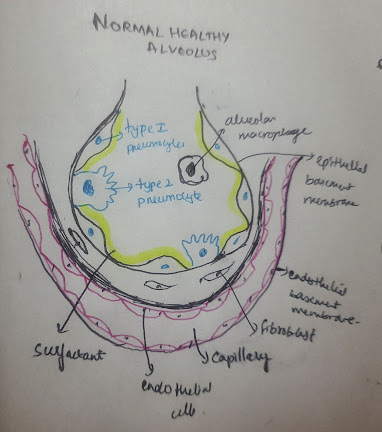 NORMAL HEALTHY
ALVEOLUS
type I
pneumocytes
alveolar
macrophage
type 2
pneumocyte
epithelial
basement
membrane
endothelial
basement
membrane
fibroblast
Capillary
endothelial
cells.
Surfactant